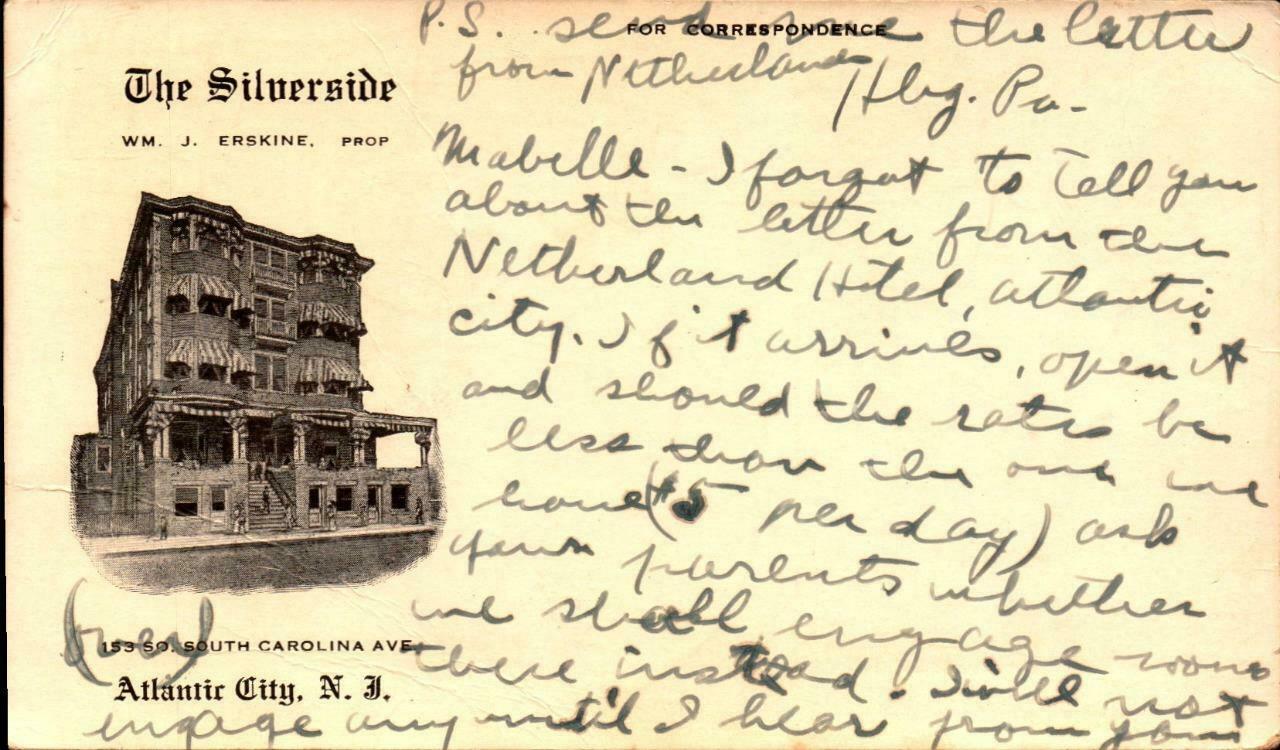 The Silverside
WM. J. ERSKINE, PROP
153 SO. SOUTH CAROLINA AVE.
Atlantic City, N. J.
FOR CORRESPONDENCE
P.S. send me the letter
from Netherlands
Hbg. Pa-
Mabelle - I forgot to tell you
about the letter from the
Netherland Hotel, Atlantic
city. If it arrives, open it
and should the rates be
less than the one we
have ($5 per day) ask
your parents whether
we shall engage rooms
there instead. I will not
engage any until I hear from you
(over)